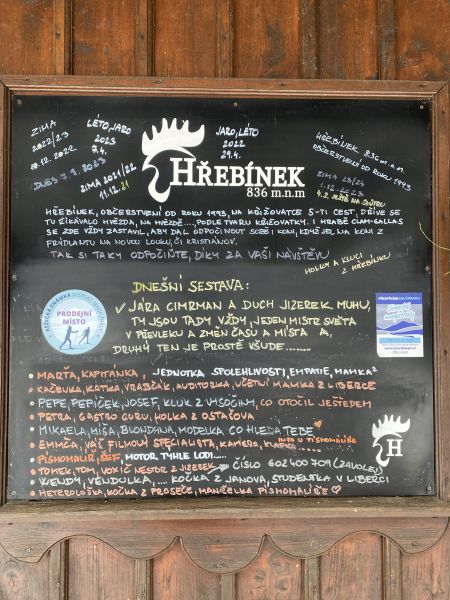 ZIMA
2022/23
10.12.2022
DNES 7.9.2023
LÉTO, JARO
2023
7.4.
ZIMA 2021/22
11.12.21
JARO, LÉTO
2022
29.4.
HŘEBÍNEK 836 m.n.m.
OBČERSTVENÍ OD ROKU 1993
ZIMA 23/24
1.12.2023
HŘEBÍNEK
836 m.n.m
HŘEBÍNEK, OBČERSTVENÍ OD ROKU 1993, NA KŘIŽOVATCE 5-TI CEST, DŘÍVE SE
TU ŘÍKÁVALO HVĚZDA, NA HVĚZDĚ...., PODLE TVARU KŘIŽOVATKY. I HRABĚ CLAM-GALLAS
SE ZDE VŽDY ZASTAVIL, ABY DAL ODPOČINOUT SOBĚ I KONI, KDYŽ JEL NA KONI Z
FRÝDLANTU NA NOVOU LOUKU, ČI KRISTIÁNOV.
TAK SI TAKY ODPOČIŇTE, DÍKY ZA VAŠI NÁVŠTĚVU
HOLKY A KLUCI
Z HŘEBÍNKU
DNEŠNÍ SESTAVA:
✓ JÁRA CIMRMAN A DUCH JIZEREK MUHU,
TY JSOU TADY VŽDY, JEDEN MISTR SVĚTA
V PŘEVLEKU A ZMĚN ČASU A MÍSTA A
DRUHÝ TEN JE PROSTĚ VŠUDE.......
PRODEJNÍ
MÍSTO
• MARŤA, KAPITÁNKA, JEDNOTKA SPOLEHLIVOSTI, EMPATIE, MAMKA²
• KAČBUKA, KATKA, VRABČÁK, AUDITORKA, ÚČETNÍ MAMKA Z LIBERCE
• PEPE, PEPÍČEK, JOSEF, KLUK Z VYSOČINY, CO OTOČIL JEŠTĚDEM
• PETRA, GASTRO GURU, HOLKA Z OSTAŠOVA
• MIKAELA, MIŠA, BLONDÝNA, MODELKA CO HLEDÁ TEBE
• EMMČA, VÁŠ FILMOVÝ SPECIALISTA, KAMERA, KLAPKA
INFO U PÍSMOMALÍŘE
• PÍSMOMALÍŘ, ŠÉF, MOTOR TÝHLE LODI....
• TOMEK, TOM, VOXIČ NESTOR Z JIZEREK → ČÍSLO 602 400 709 (ZAVOLEJ)
• WENDY, VENDULKA, ... KOČKA Z JANOVA, STUDENTKA V LIBERCI
• HETEROLOŽKA, KOČKA Z PROSEČE, MANŽELKA PÍSMOMALÍŘE ♡
H